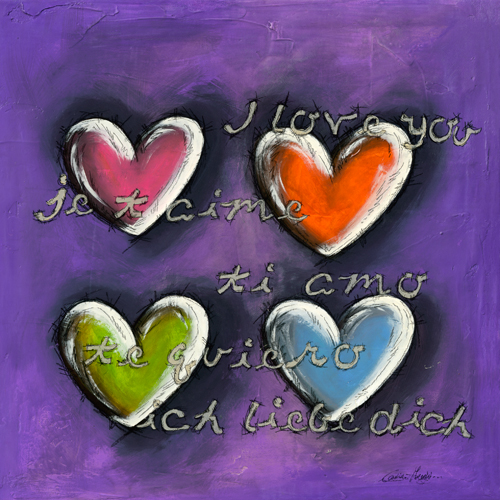 I love you
je t aime
ti amo
te quiero
ich liebe dich